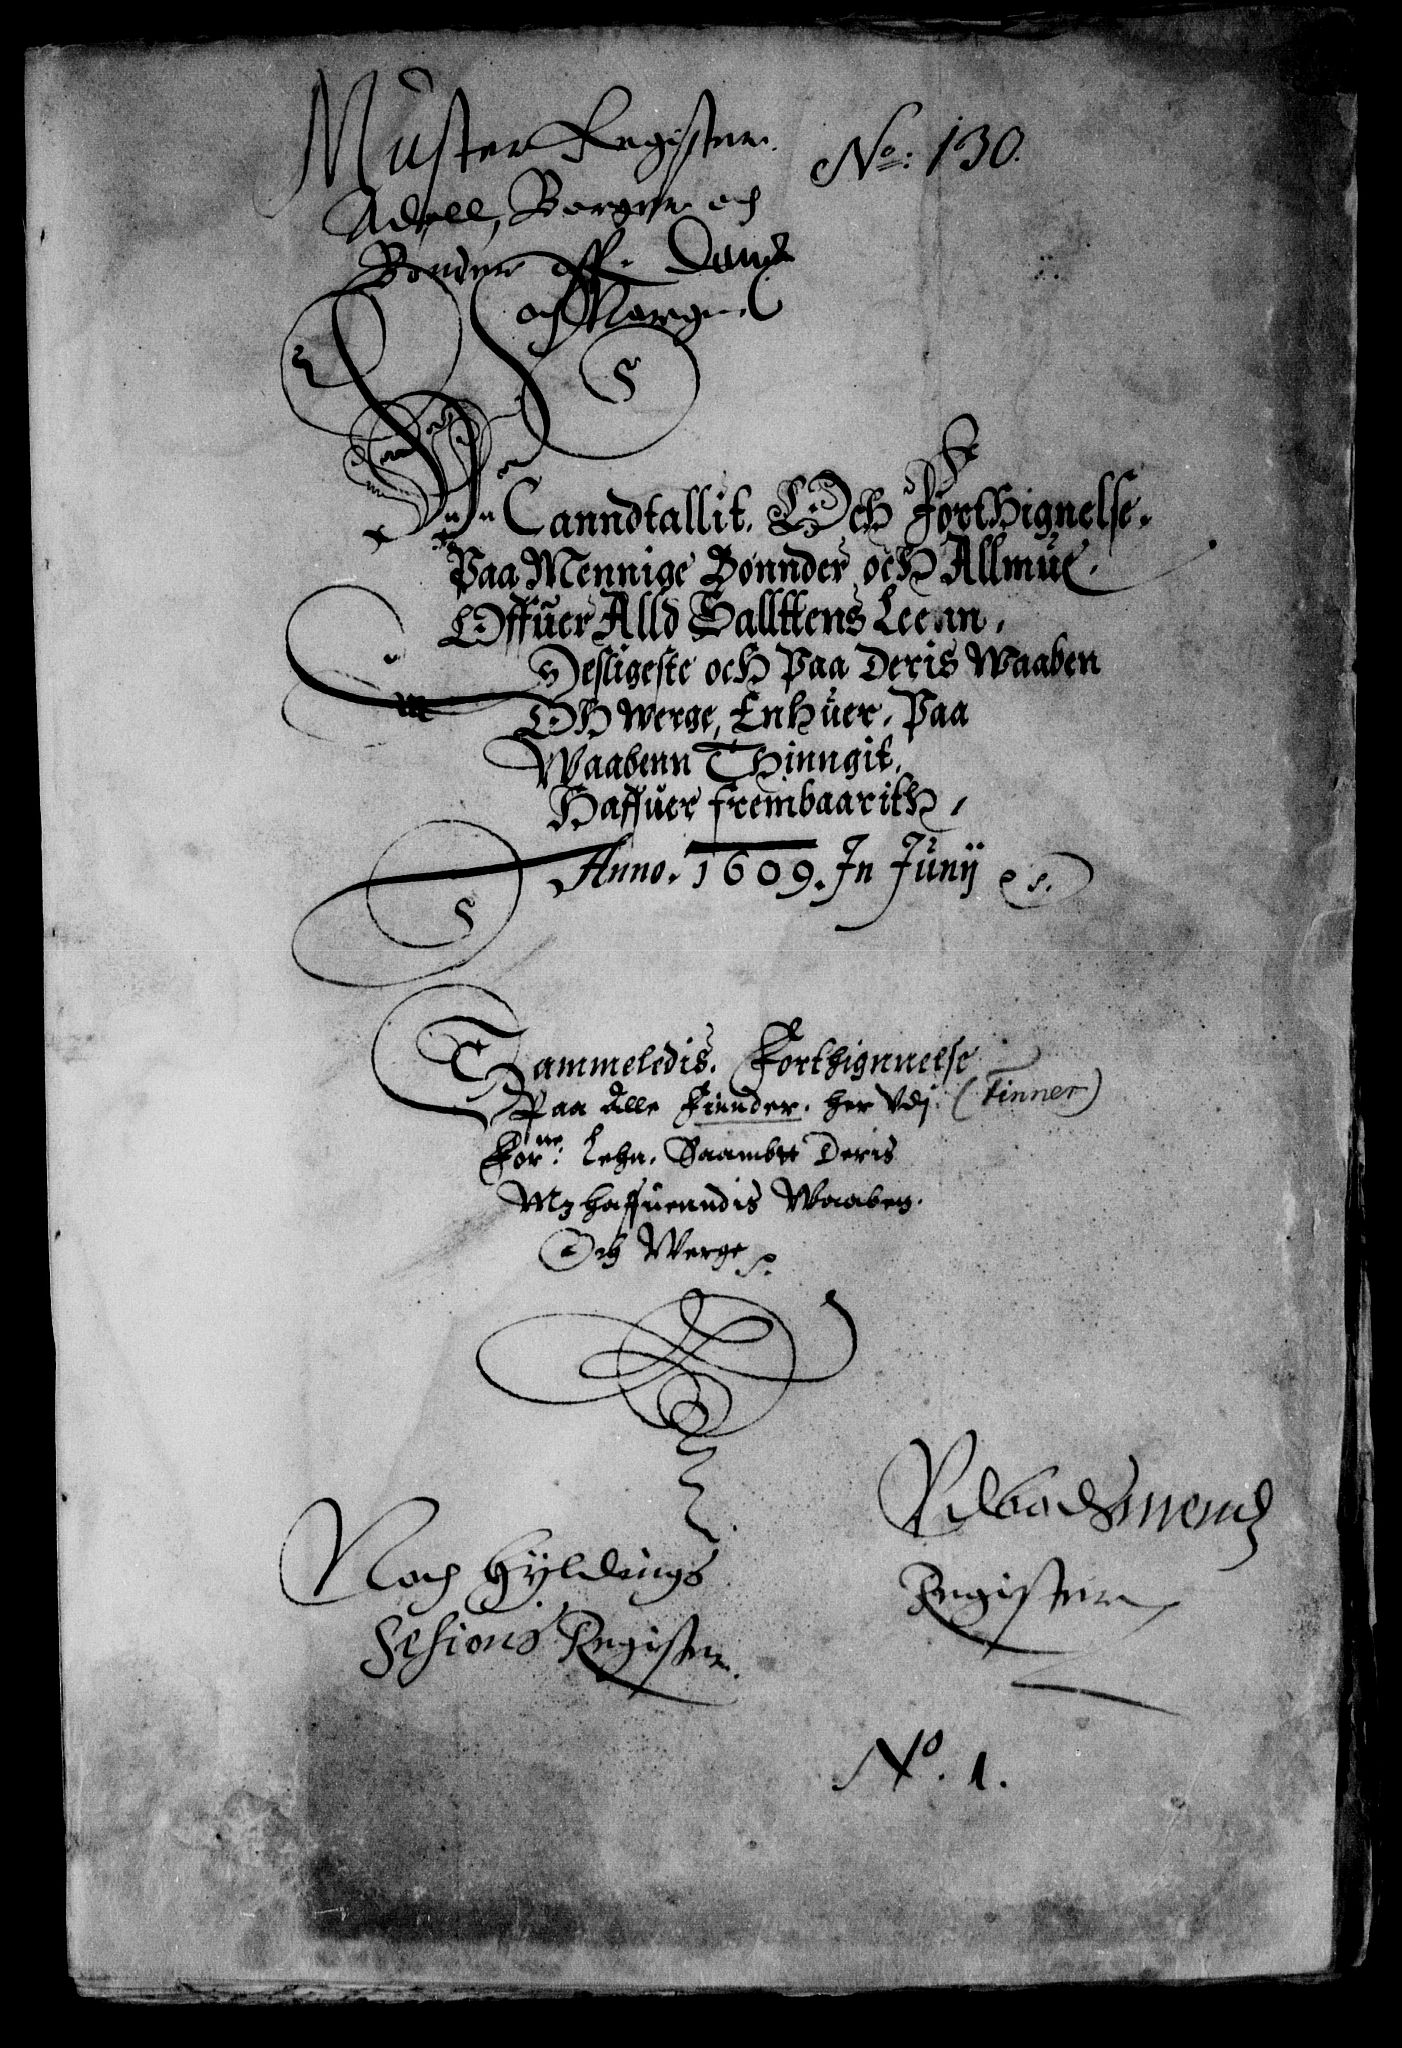 Muster Register. No: 130.
Adell, Borger och
Bønder aff. Dan
och Norge
S
Manndtallit. Och Forthignelse.
Paa Mennige Bønnder och Allmue.
Offuer Alld Salltens Leenn.
Desligeste och Paa Deris Waaben
Och Werge, Enhuer. Paa
Waabenn Thinngit.
Haffuer frembaarith,
Anno. 1609. In Junij
S
Sammeledis. Forthignnelse
Paa Alle Finnder. her Vdj. (Finner)
For:ne Lehn. Saambtt Deris
Mz haffuenndis Waaben.
Och Werge
Baadsmend
Register
Noch Hyldings
Sesions Register.
No. 1.